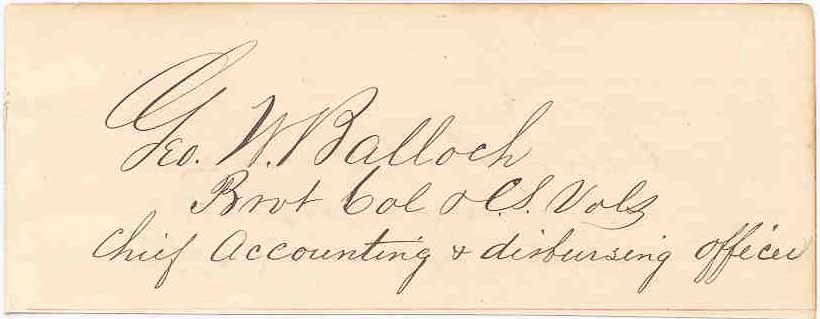 Geo. W. Balloch
Brvt Col & C.S. Vols
Chief Accounting & disbursing officer